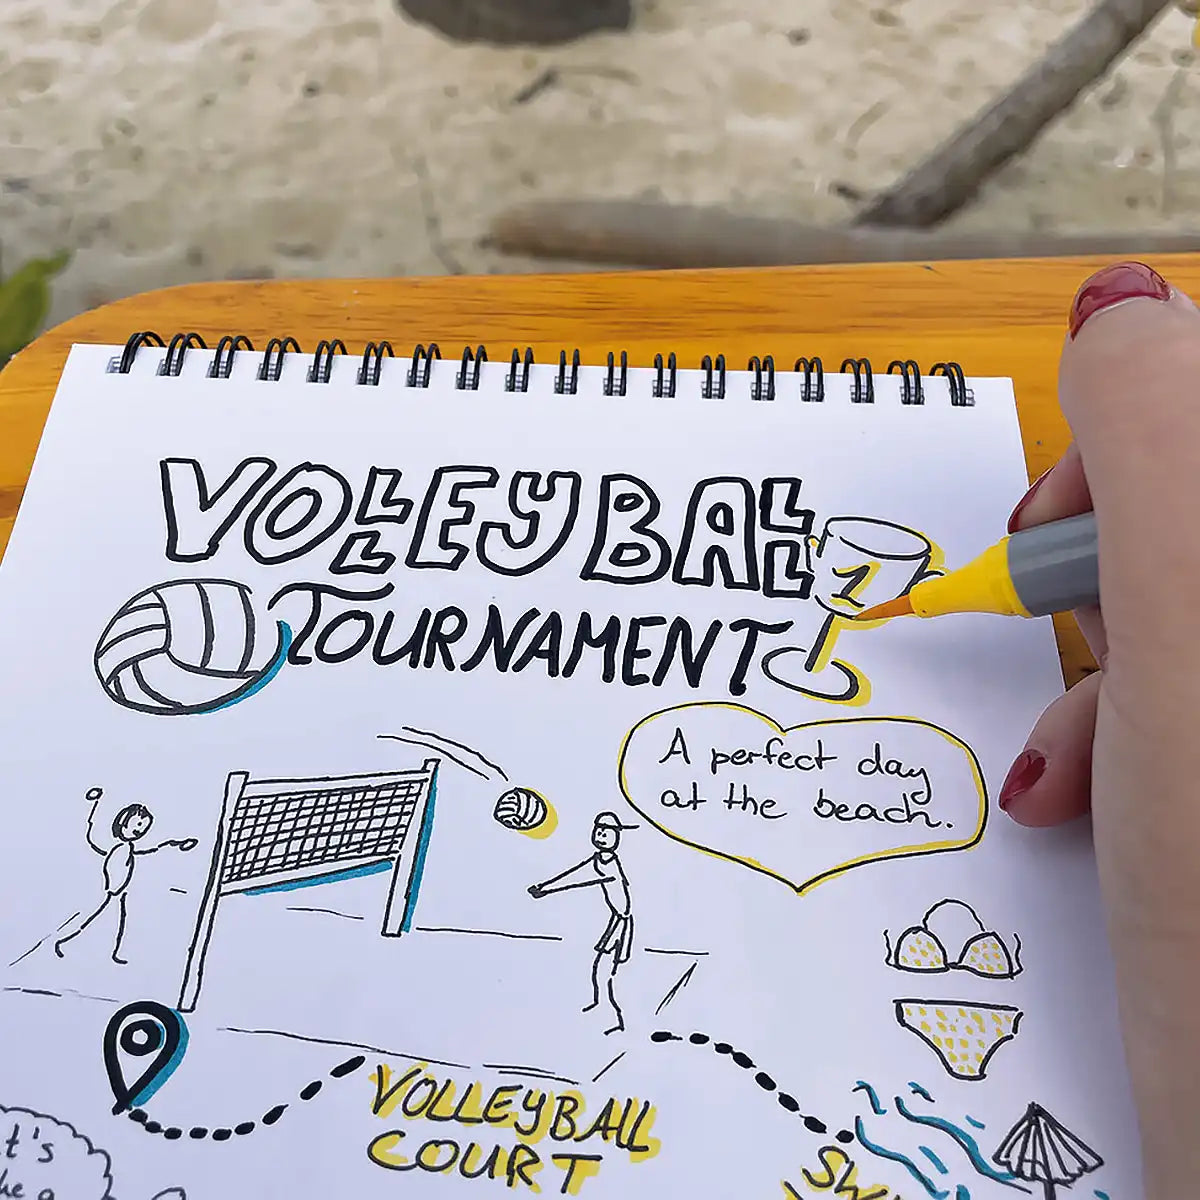 VOLLEYBALL
TOURNAMENT
1
A perfect day
at the beach.
VOLLEYBALL
COURT